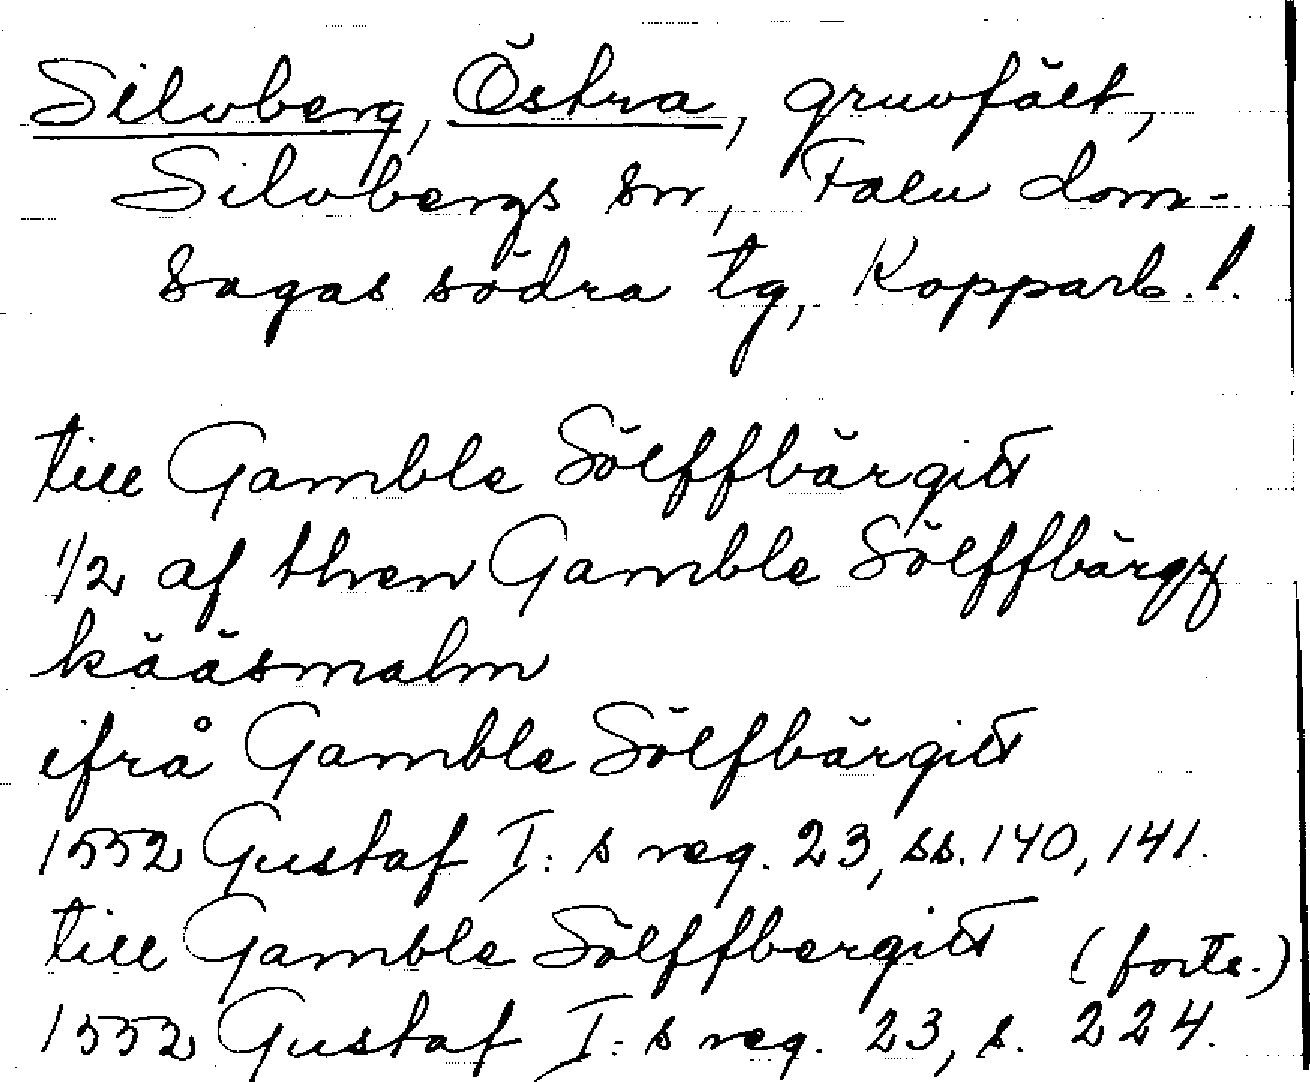 Silvberg, Östra, gruvfält,
Silvbergs sn, Falu dom-
sagas södra tg, Kopparb. l.
till Gamble Sölffbärgitt
1/2 af then Gamble Sölffbärgz
kääsmalm
ifrå Gamble Sölfbärgitt
1552 Gustaf I:s reg. 23, ss. 140, 141.
till Gamble Sölffbergitt (forts.)
1552 Gustaf I:s reg. 23, s. 224.